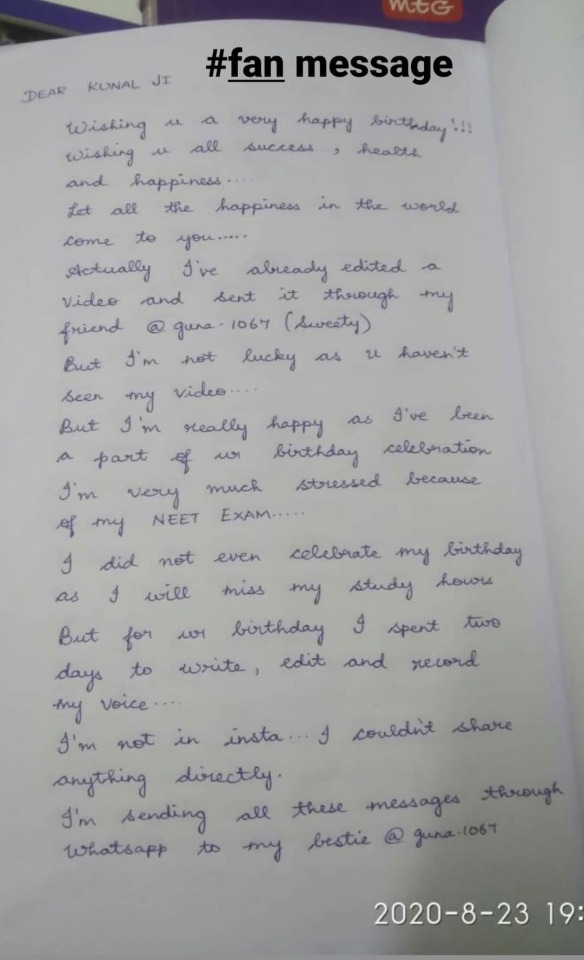 MtG
#fan message
DEAR KUNAL JI
Wishing u a very happy birthday!!!
Wishing u all success, health
and happiness.....
Let all the happiness in the world
come to you.....
Actually I've already edited a
video and sent it through my
friend @guna-1067 (Sweety)
But I'm not lucky as u haven't
seen my video....
But I'm really happy as I've been
a part of ur birthday celebration
I'm very much stressed because
of my NEET EXAM.....
I did not even celebrate my birthday
as I will miss my study hours
But for ur birthday I spent two
days to write, edit and record
my voice....
I'm not in insta... I couldn't share
anything directly.
I'm sending all these messages through
Whatsapp to my bestie @guna-1067
2020-8-23 19: